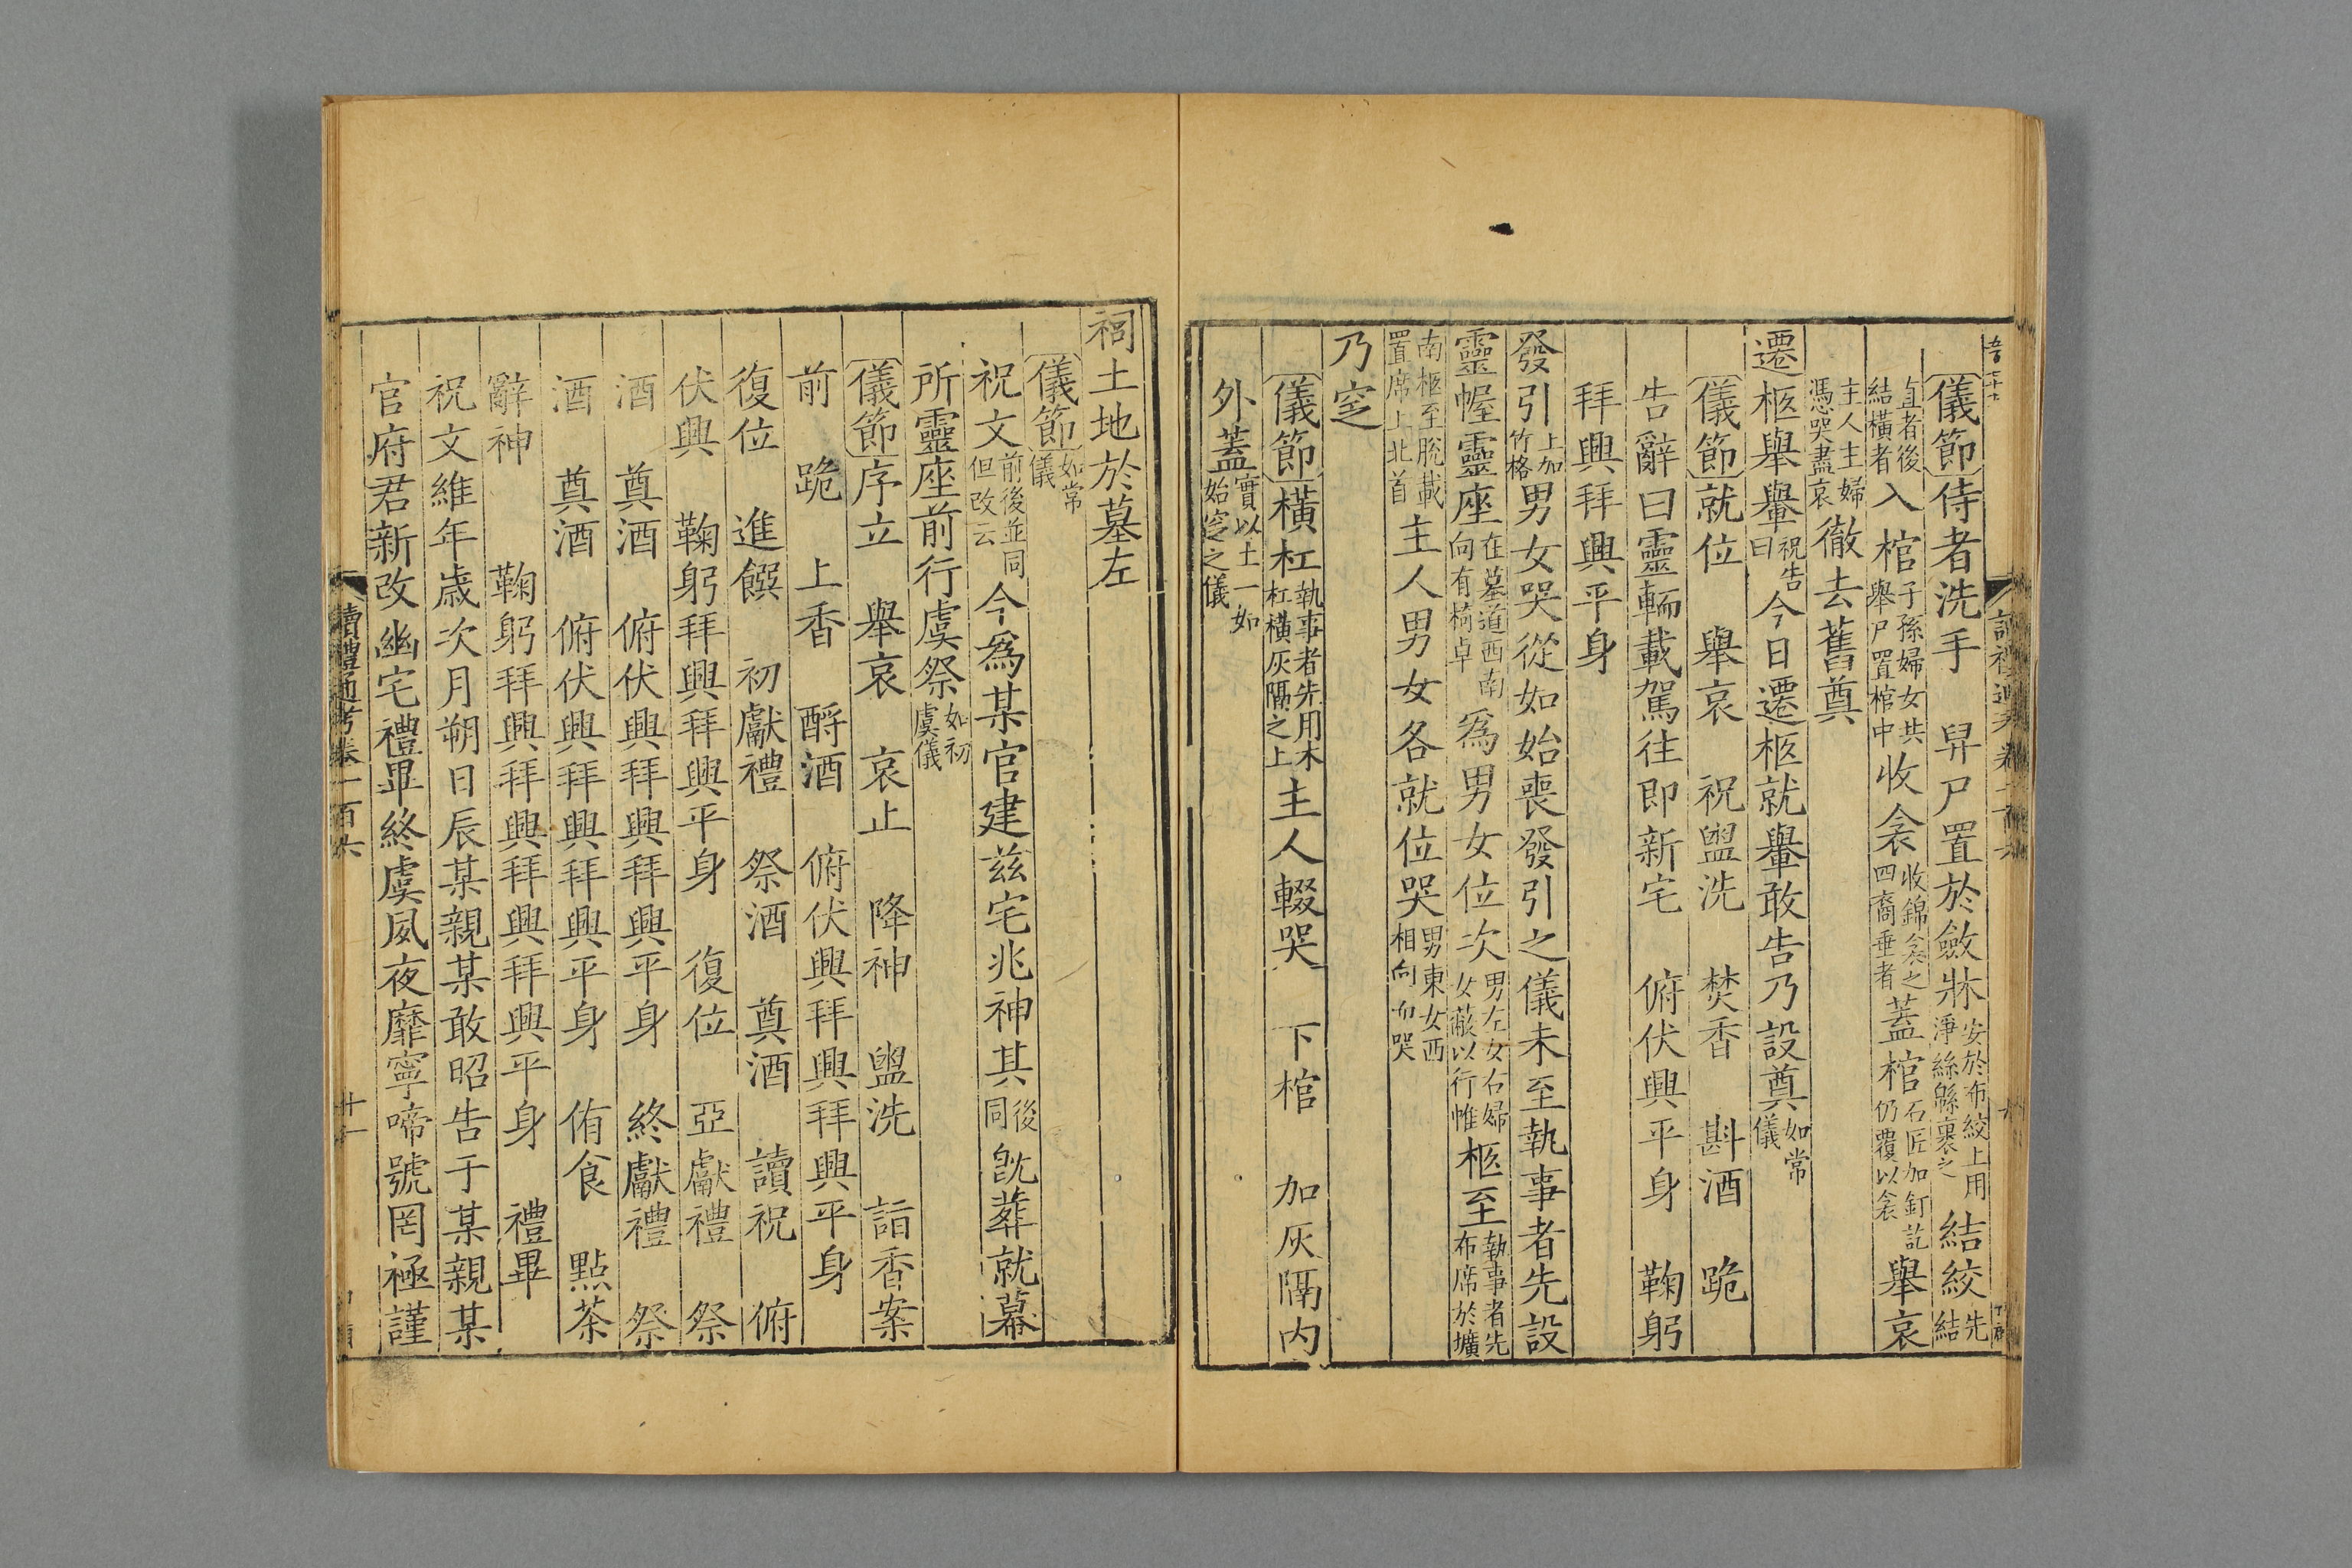 儀節侍者洗手　舁尸置於斂牀安於布絞上用淨絲緜裹之結絞先結
直者後結橫者入棺子孫婦女共舉尸置棺中收衾收錦衾之四裔垂者蓋棺石匠加釘訖仍覆以衾舉哀
主人主婦憑哭盡哀徹去舊奠
遷柩舉轝祝告曰今日遷柩就轝敢告乃設奠如常儀
儀節就位　舉哀　祝盥洗　焚香　斟酒　跪
告辭曰靈輀載駕往即新宅　俯伏興平身　鞠躬
拜興拜興平身
發引上加竹格男女哭從如始喪發引之儀未至執事者先設
靈幄靈座在墓道西南向有椅卓爲男女位次男左女右婦女蔽以行帷柩至執事者先布席於壙
南柩至脫載置席上北首主人男女各就位哭男東女西相向而哭
乃窆
儀節橫杠執事者先用木杠橫灰隔之上主人輟哭　下棺　加灰隔內
外蓋實以土一如始窆之儀
祠土地於墓左
儀節如常儀
祝文前後並同但改云今爲某官建茲宅兆神其後同旣葬就幕
所靈座前行虞祭如初虞儀
儀節序立　舉哀　哀止　降神　盥洗　詣香案
前　跪　上香　酹酒　俯伏興拜興拜興平身
復位　進饌　初獻禮　祭酒　奠酒　讀祝　俯
伏興　鞠躬拜興拜興平身　復位　亞獻禮　祭
酒　奠酒　俯伏興拜興拜興平身　終獻禮　祭
酒　奠酒　俯伏興拜興拜興平身　侑食　點茶
辭神　鞠躬拜興拜興拜興拜興平身　禮畢
祝文維年歲次月朔日辰某親某敢昭告于某親某
官府君新改幽宅禮畢終虞夙夜靡寧啼號罔極謹
讀禮通考卷一百六　十一